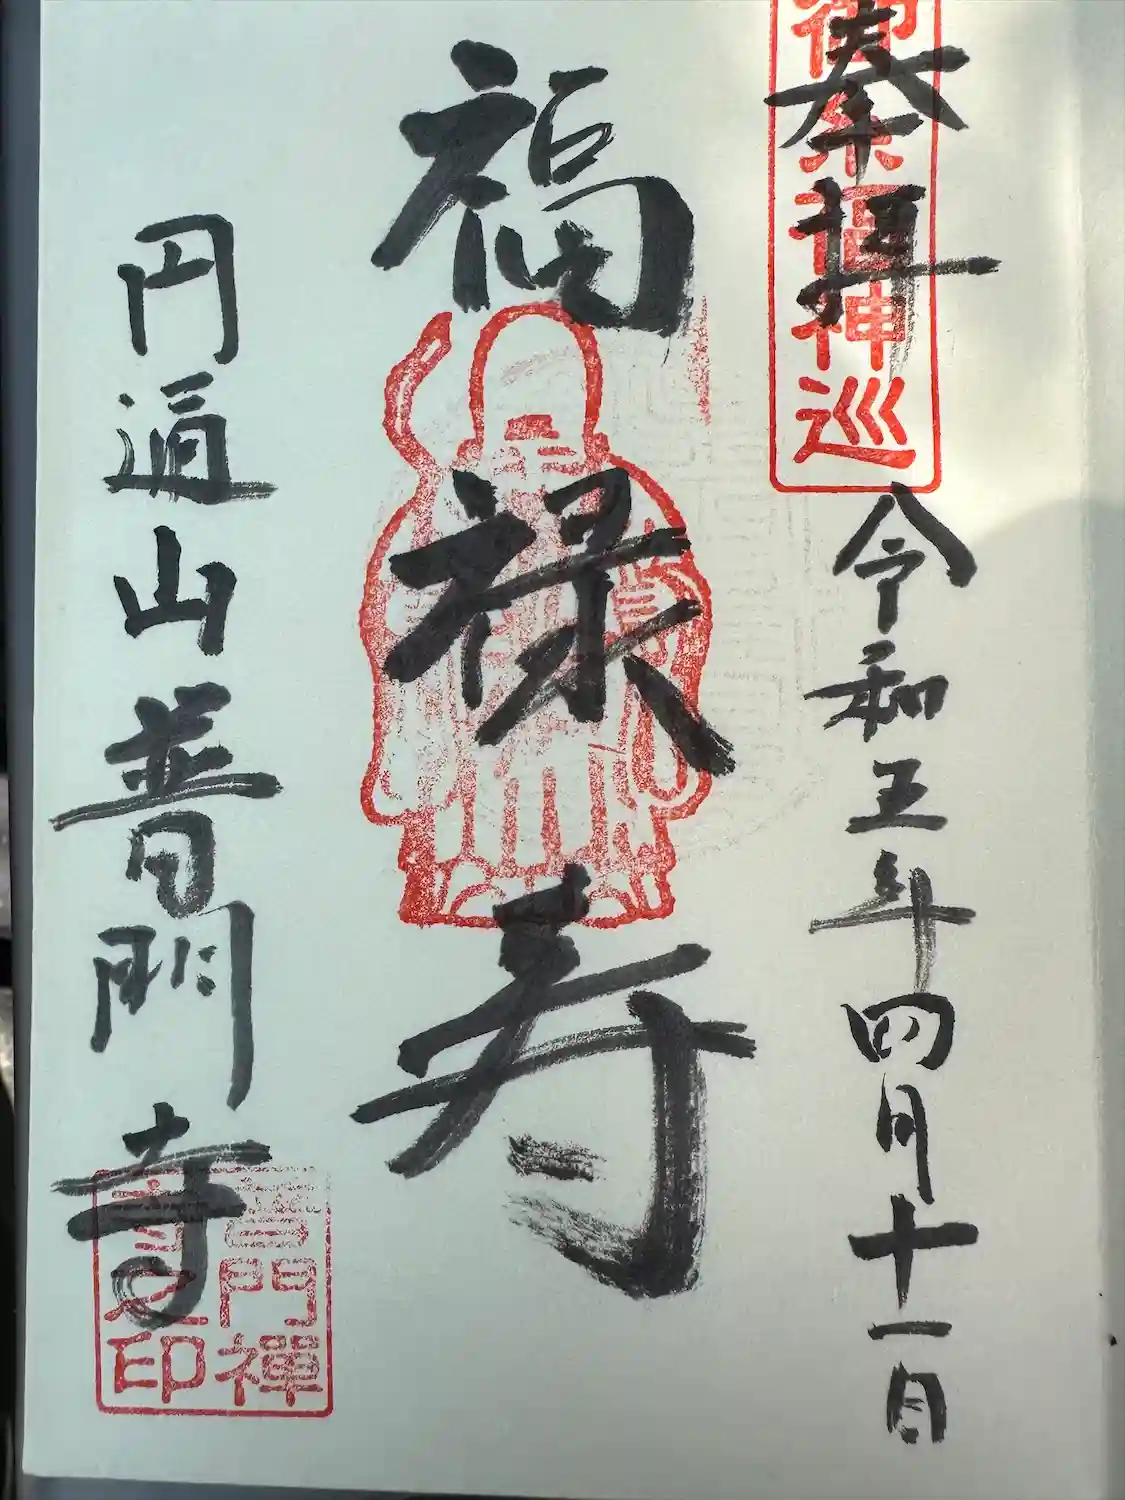 奉拝
令和五年四月十一日
福禄寿
円通山普門寺
神巡
普門禅
寺之印